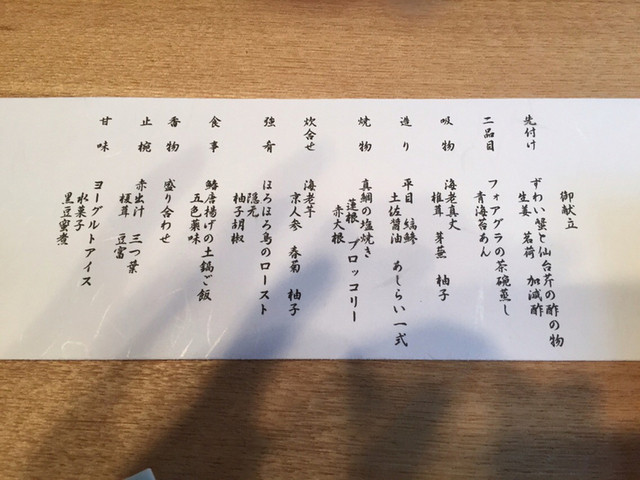 御献立
先付け ずわい蟹と仙台芹の酢の物
生姜 茗荷 加減酢
二品目 フォアグラの茶碗蒸し
青海苔あん
吸物 海老真丈
椎茸 芽蕪 柚子
造り 平目 縞鯵 あしらい一式
土佐醤油
焼物 真鯛の塩焼き
蓮根 ブロッコリー
赤大根
炊合せ 海老芋
京人参 春菊 柚子
強肴 ほろほろ鳥のロースト
隠元
柚子胡椒
食事 鰭唐揚げの土鍋ご飯
五色薬味
香物 盛り合わせ
止椀 赤出汁 三つ葉
榎茸 豆富
甘味 ヨーグルトアイス
水菓子
黒豆蜜煮